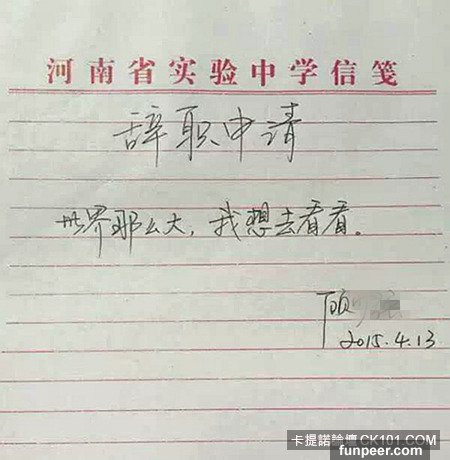 河南省实验中学信笺
辞职申请
世界那么大，我想去看看。
顾
2015.4.13
卡提諾論壇 CK101.COM
funpeer.com